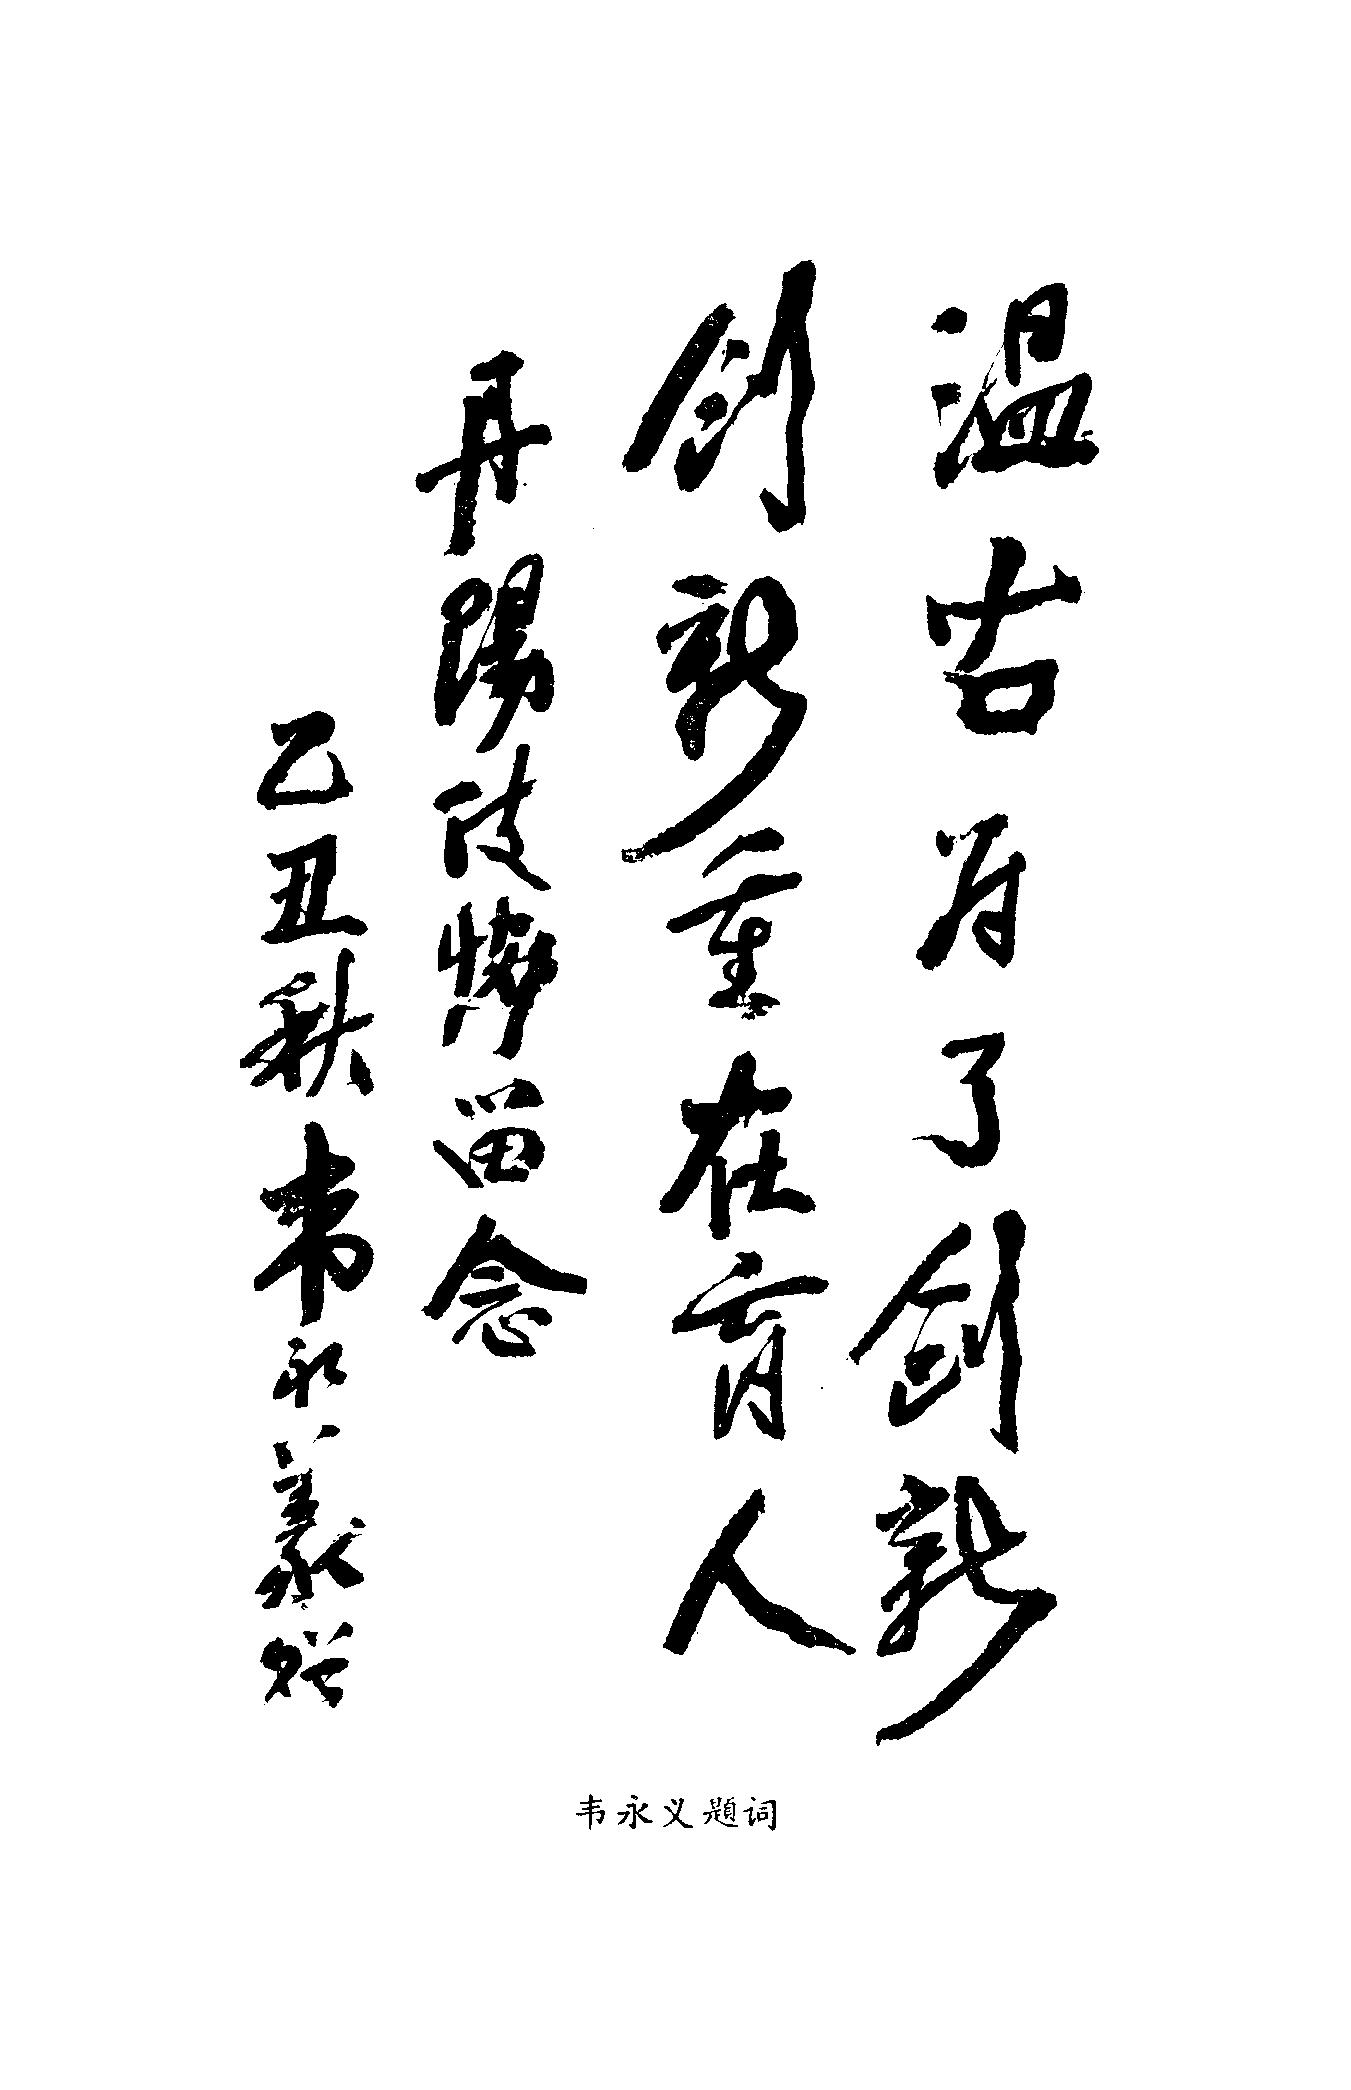 温古为了創新
創新重在育人
丹陽政協留念
乙丑秋韦永義贈
韦永义题词